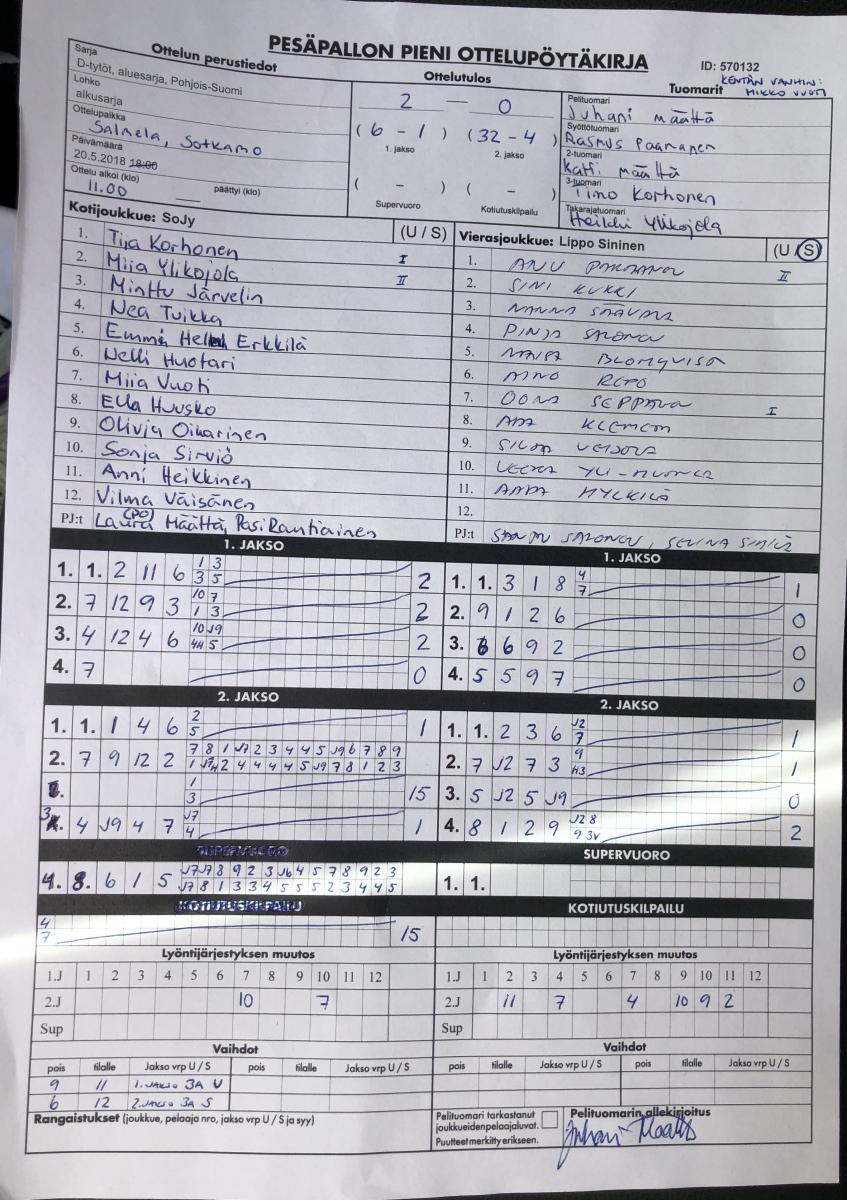 PESÄPALLON PIENI OTTELUPÖYTÄKIRJA
ID: 570132
Sarja Ottelun perustiedot
D-tytöt, aluesarja, Pohjois-Suomi
Lohko
alkusarja
Ottelupaikka
Salmela, Sotkamo
Päivämäärä
20.5.2018 18:00
Ottelu alkoi (klo) päättyi (klo)
11.00
Ottelutulos
2 — 0
(6 - 1) (32 - 4)
1. jakso 2. jakso
( - ) ( - )
Supervuoro Kotiutuskilpailu
Tuomarit
KENTÄN VANHIN:
MIKKO VUOTI
Pelituomari
Juhani Määttä
Syöttötuomari
Rasmus Paananen
2-tuomari
Katti Määttä
3-tuomari
Timo Korhonen
Takarajatuomari
Heikki Ylikojola
Kotijoukkue: SoJy (U / S)
1. Tiia Korhonen I
2. Miia Ylikojola II
3. Minttu Järvelin
4. Nea Tuikka
5. Emma Erkkilä
6. Nelli Huotari
7. Miia Vuoti
8. Ella Huusko
9. Olivia Oikarinen
10. Sonja Sirviö
11. Anni Heikkinen
12. Vilma Väisänen
PJ:t Laura (PO) Määttä, Pasi Rautiainen
Vierasjoukkue: Lippo Sininen (U / S)
1. ANU II
2. SINI KUKKI
3. NANNA
4. PINJA SALONEN
5. BLOMQVIST
6. AINO REPO
7. OONA SEPPÄNEN I
8. ADA KLEMETTI
9.
10. VEERA YLI-
11. ANNA HYLKILÄ
12.
PJ:t SALONEN, SELINA
1. JAKSO
1. 1. 2 11 6 1 3 2
3 5
2. 7 12 9 3 10 7 2
1 3
3. 4 12 4 6 10 J9 2
4H 5
4. 7 0
1. JAKSO
1. 1. 3 1 8 4 1
7
2. 9 1 2 6 0
3. 6 6 9 2 0
4. 5 5 9 7 0
2. JAKSO
1. 1. 1 4 6 2 1
5
2. 7 9 12 2 7 8 1 J7 2 3 4 4 5 J9 6 7 8 9
1 2 4 4 4 4 5 J9 7 8 1 2 3
1 15
3
3. 4 J9 4 7 J7 1
4
2. JAKSO
1. 1. 2 3 6 J2 1
7
2. 7 J2 7 3 9 1
H3
3. 5 J2 5 J9 0
4. 8 1 2 9 J2 8 2
9 3V
SUPERVUORO
4. 8. 6 1 5 J7 J7 8 9 2 3 J6 4 5 7 8 9 2 3
J7 8 1 3 3 4 5 5 5 2 3 4 4 5
SUPERVUORO
1. 1.
KOTIUTUSKILPAILU
4 15
7
KOTIUTUSKILPAILU
Lyöntijärjestyksen muutos
1.J 1 2 3 4 5 6 7 8 9 10 11 12
2.J 10 7
Sup
Lyöntijärjestyksen muutos
1.J 1 2 3 4 5 6 7 8 9 10 11 12
2.J 11 7 4 10 9 2
Sup
Vaihdot
pois tilalle Jakso vrp U / S pois tilalle Jakso vrp U / S
9 11 1. JAKSO 3A U
6 12 2. JAKSO 3A S
Vaihdot
pois tilalle Jakso vrp U / S pois tilalle Jakso vrp U / S
Rangaistukset (joukkue, pelaaja nro, jakso vrp U / S ja syy)
Pelituomari tarkastanut
joukkueidenpelaajaluvat.
Puutteet merkitty erikseen.
Pelituomarin allekirjoitus
Juhani Määttä